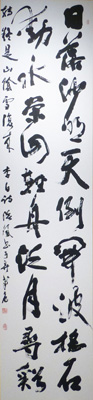 日落沙明天倒開波搖石
動水縈回輕舟泛月尋谿
轉疑是山陰雪後來 李白詩